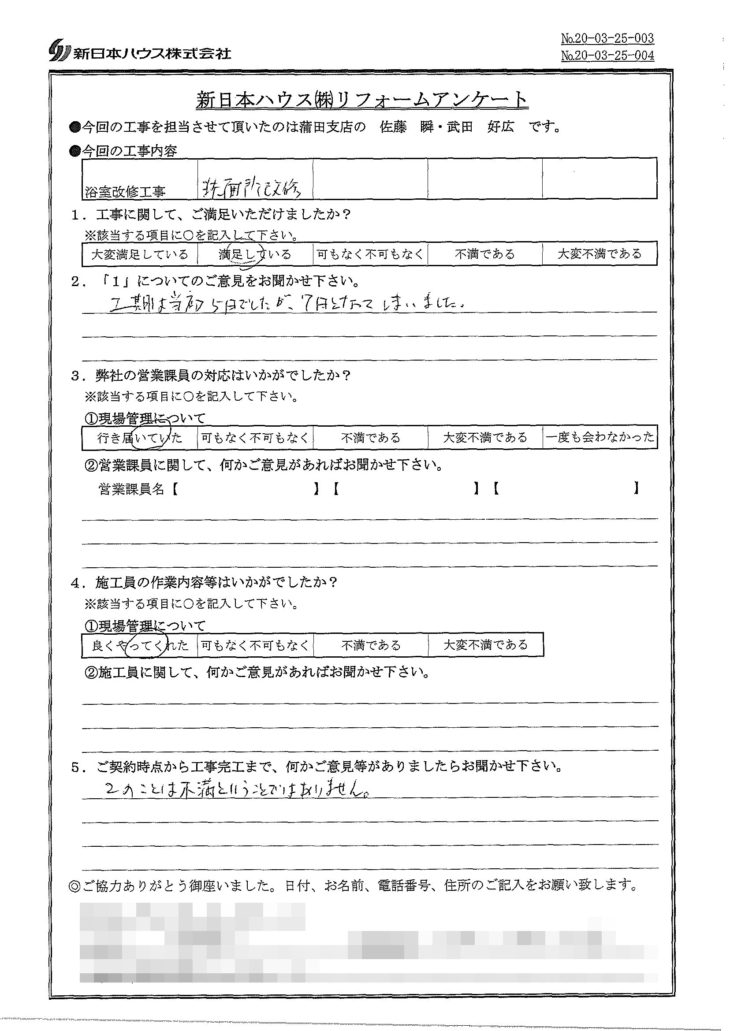 新日本ハウス株式会社
No.20-03-25-003
No.20-03-25-004
新日本ハウス㈱リフォームアンケート
●今回の工事を担当させて頂いたのは蒲田支店の 佐藤 瞬・武田 好広 です。
●今回の工事内容
浴室改修工事 洗面所改修
1．工事に関して、ご満足いただけましたか？
※該当する項目に○を記入して下さい。
大変満足している 満足している 可もなく不可もなく 不満である 大変不満である
2．「1」についてのご意見をお聞かせ下さい。
工期は当初5日でしたが、7日となってしまいました。
3．弊社の営業課員の対応はいかがでしたか？
※該当する項目に○を記入して下さい。
①現場管理について
行き届いていた 可もなく不可もなく 不満である 大変不満である 一度も会わなかった
②営業課員に関して、何かご意見があればお聞かせ下さい。
営業課員名【 】【 】【 】
4．施工員の作業内容等はいかがでしたか？
※該当する項目に○を記入して下さい。
①現場管理について
良くやってくれた 可もなく不可もなく 不満である 大変不満である
②施工員に関して、何かご意見があればお聞かせ下さい。
5．ご契約時点から工事完工まで、何かご意見等がありましたらお聞かせ下さい。
2のことは不満ということではありません。
◎ご協力ありがとう御座いました。日付、お名前、電話番号、住所のご記入をお願い致します。